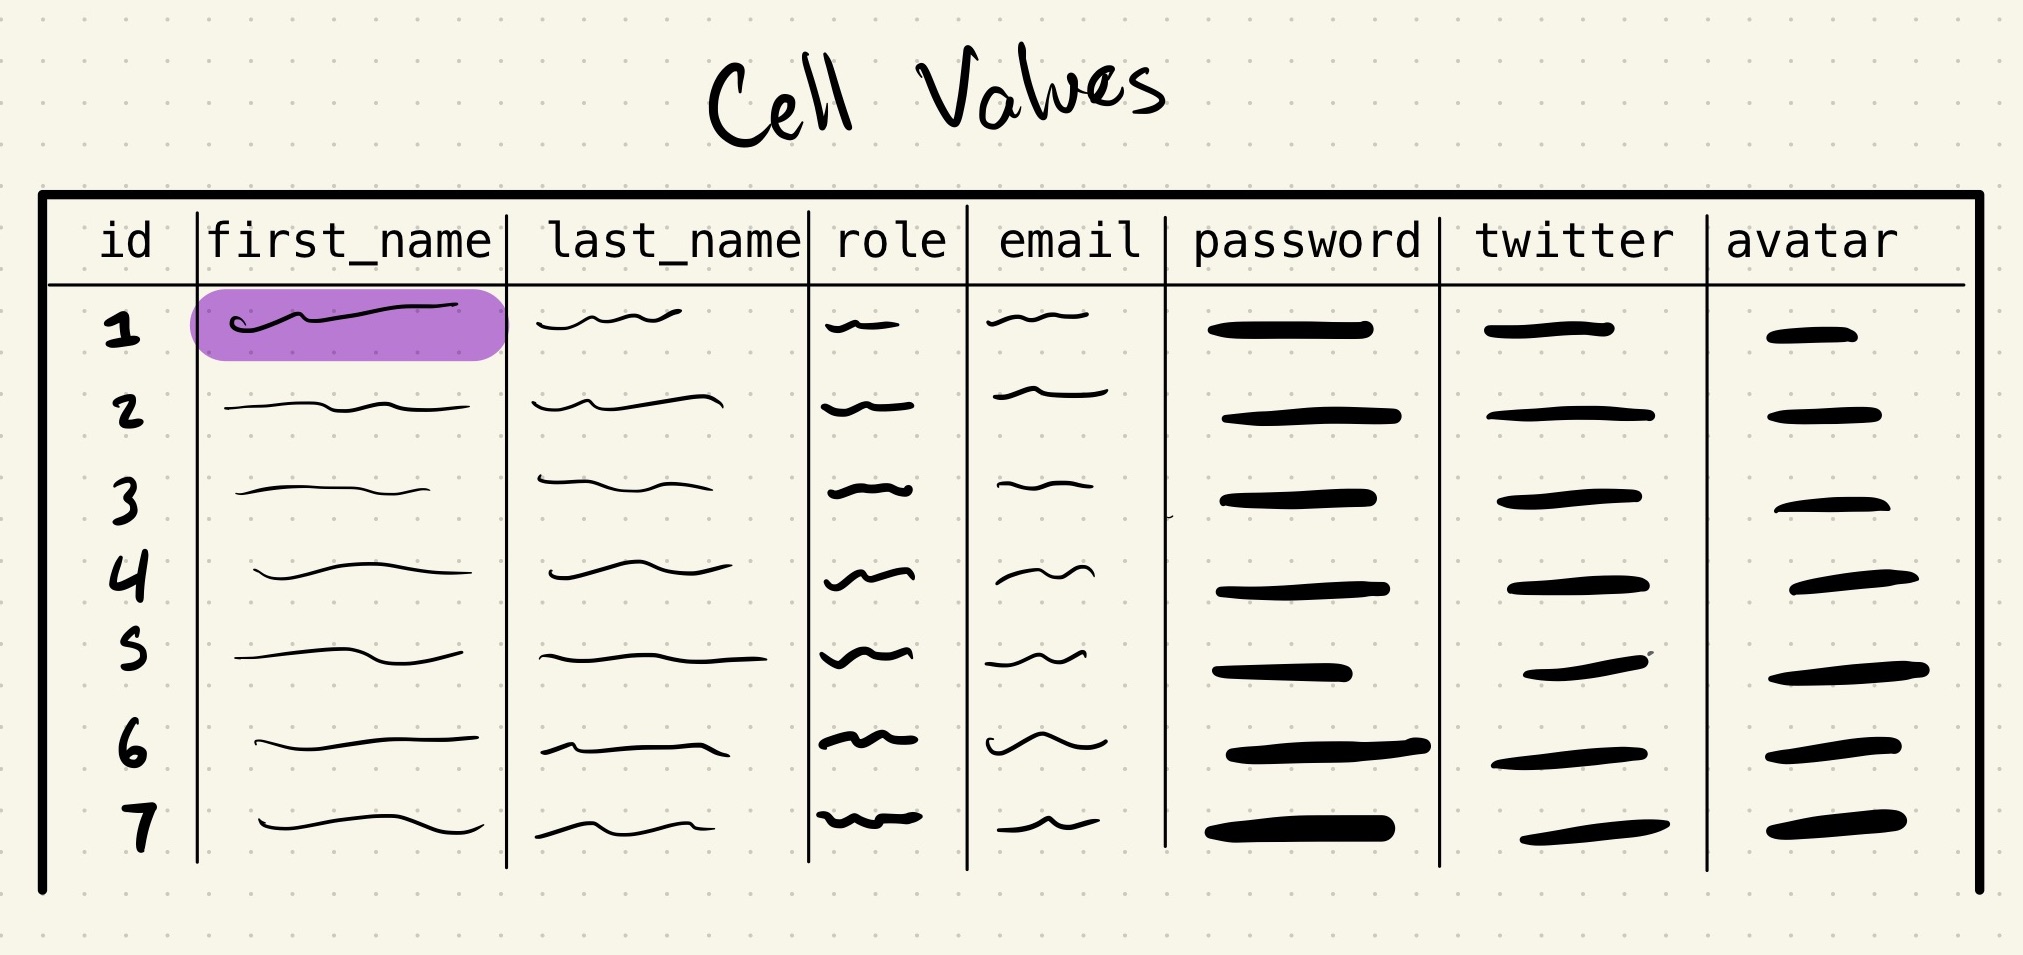 Cell Values
id first_name last_name role email password twitter avatar
1
2
3
4
5
6
7